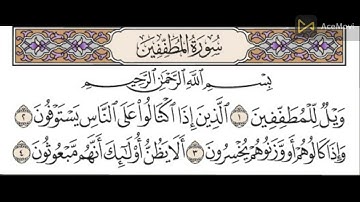 AceMovi
سُورَةُ المُطَفِّفِينَ
بِسْمِ اللَّهِ الرَّحْمَٰنِ الرَّحِيمِ
وَيْلٌ لِّلْمُطَفِّفِينَ ١ الَّذِينَ إِذَا اكْتَالُوا عَلَى النَّاسِ يَسْتَوْفُونَ ٢
وَإِذَا كَالُوهُمْ أَو وَّزَنُوهُمْ يُخْسِرُونَ ٣ أَلَا يَظُنُّ أُولَٰئِكَ أَنَّهُم مَّبْعُوثُونَ ٤